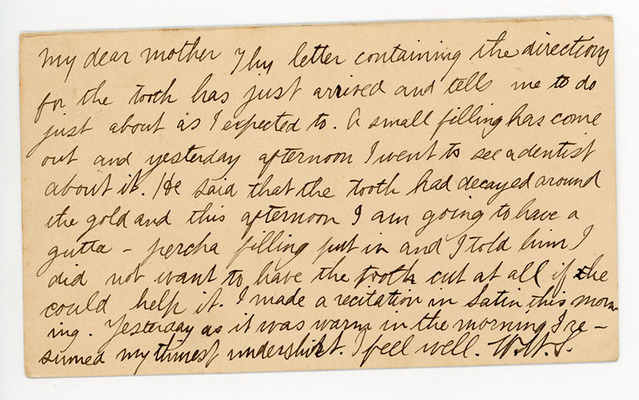 My dear mother Thy letter containing the directions
for the tooth has just arrived and tells me to do
just about as I expected to. A small filling has come
out and yesterday afternoon I went to see a dentist
about it. He said that the tooth had decayed around
the gold and this afternoon I am going to have a
gutta - percha filling put in and I told him I
did not want to have the tooth cut at all if the
could help it. I made a recitation in Latin this morn
ing. Yesterday as it was warm in the morning I re-
sumed my thinest undershirt. I feel well. W.W.S.